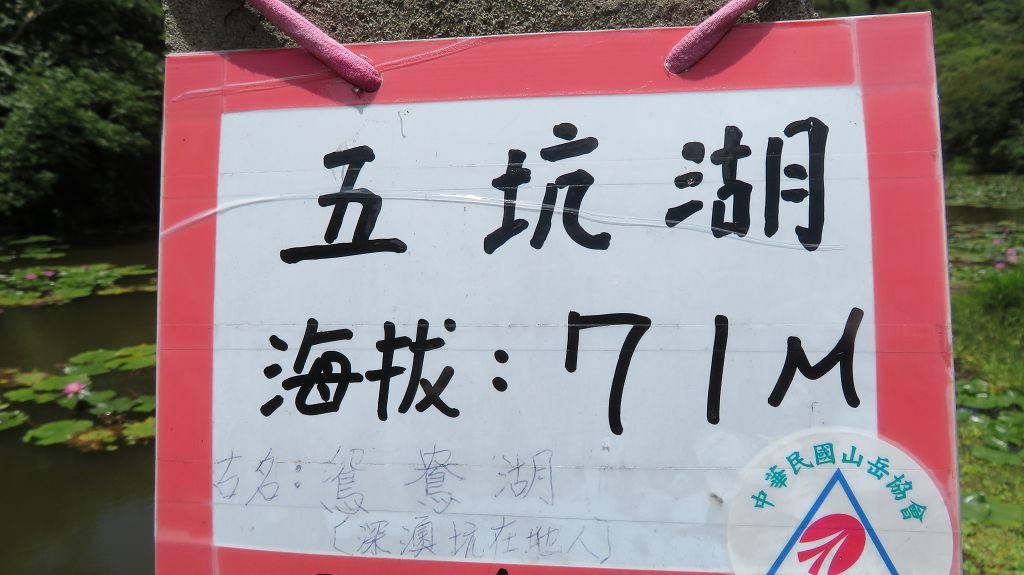 五坑湖
海拔:71M
古名:鴛鴦湖
(深澳坑在地人)
中華民國山岳協會